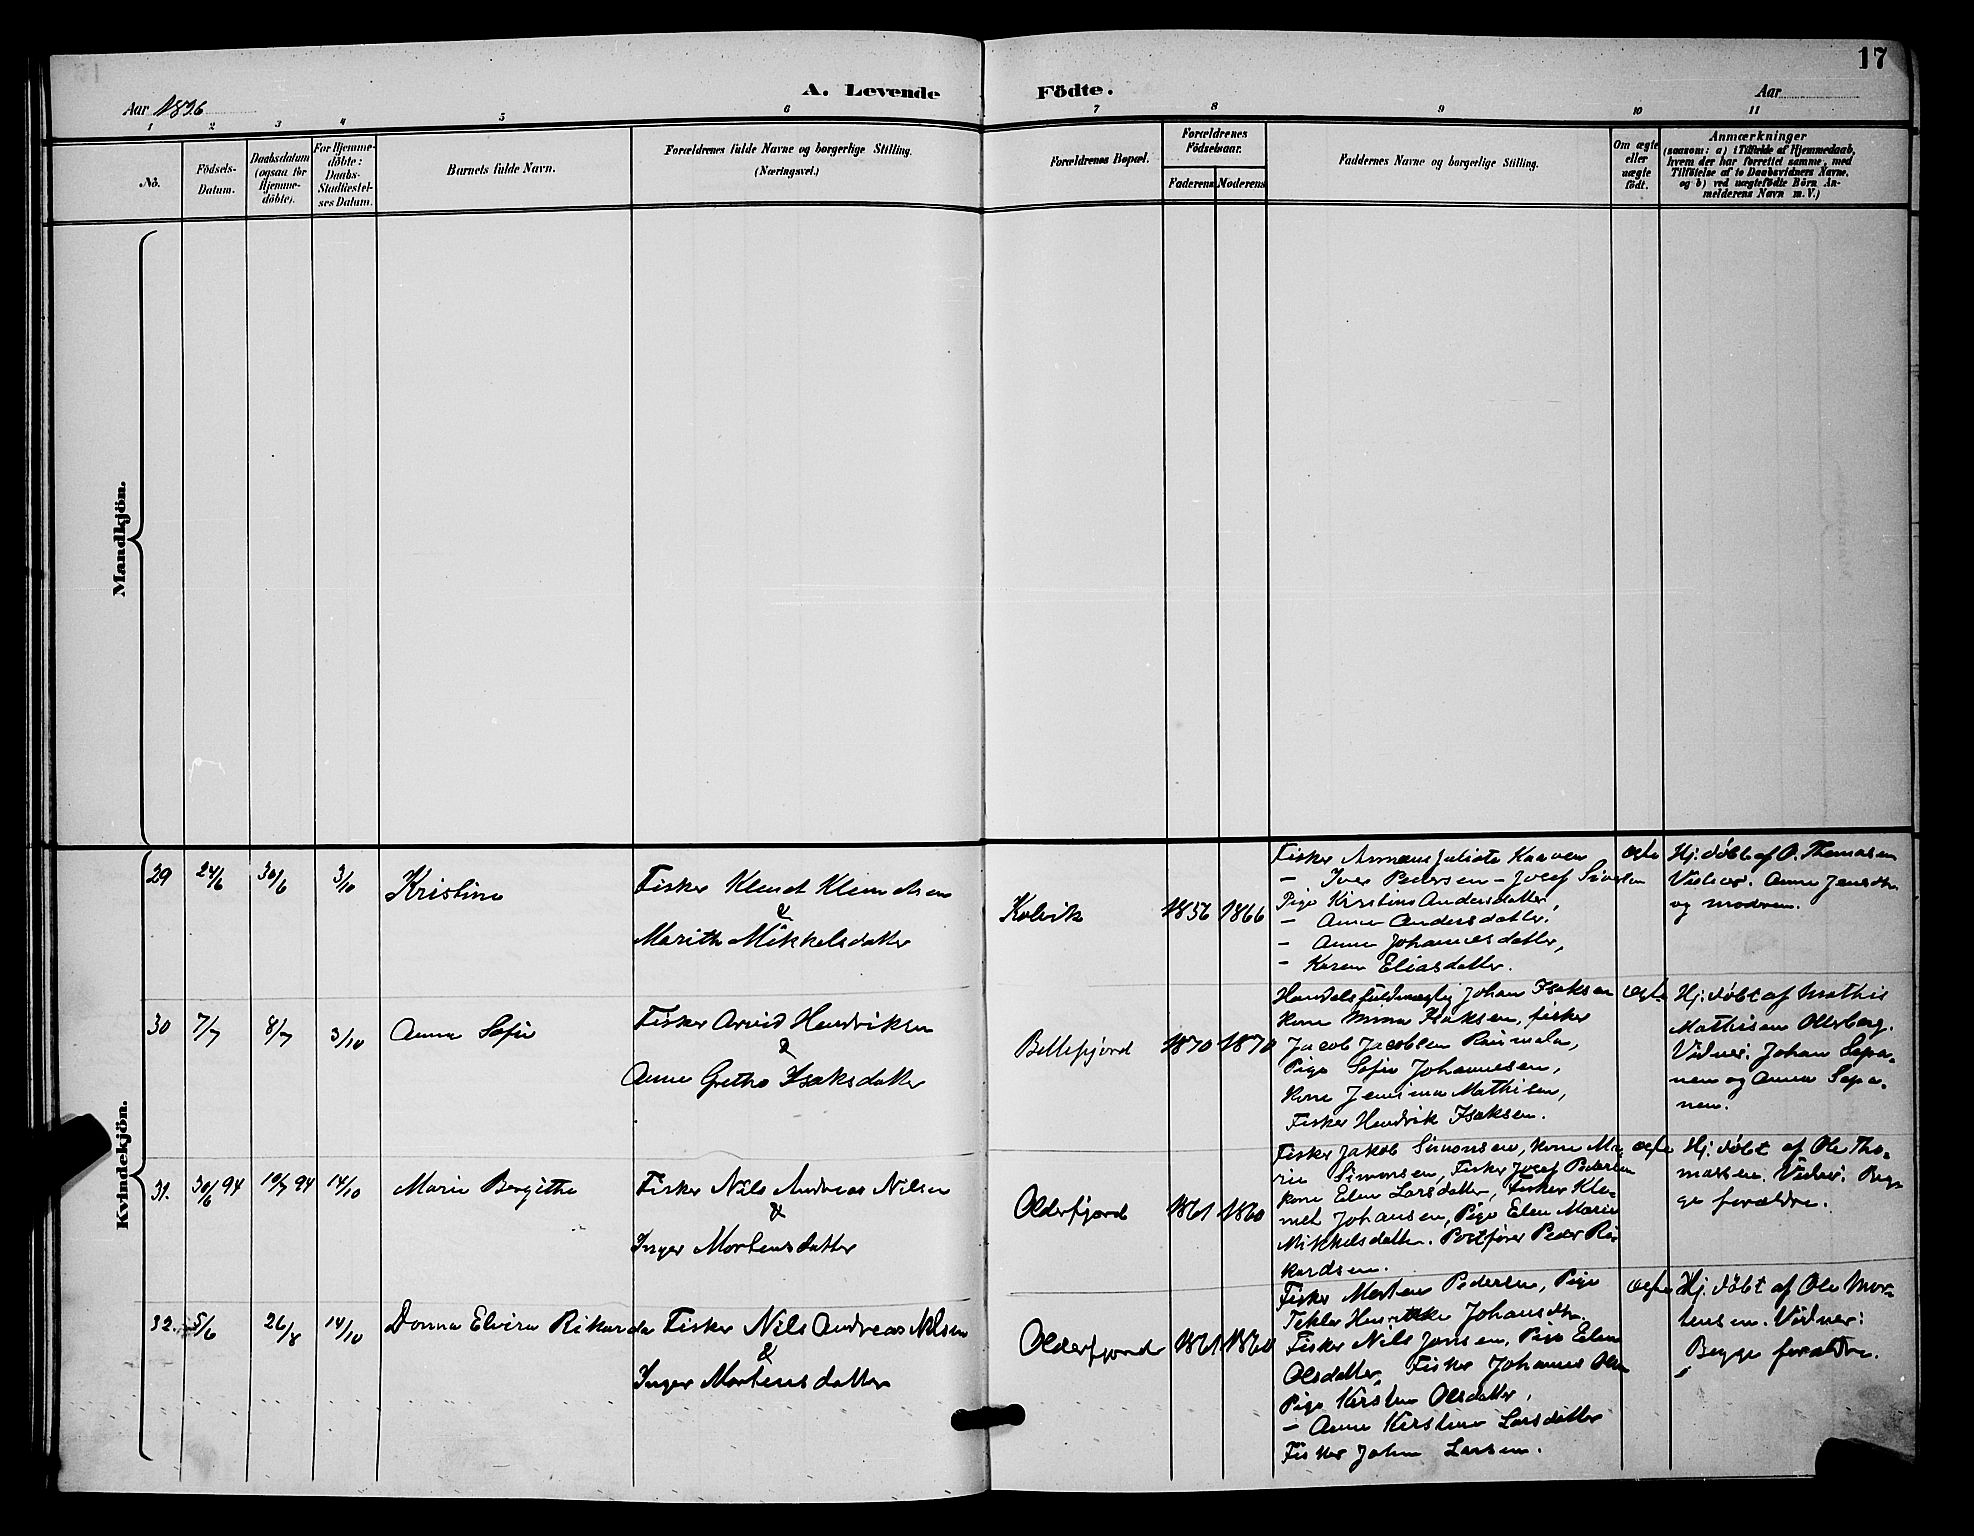 17
A. Levende Födte.
Aar 1896
Aar
1 2 3 4 5 6 7 8 9 10 11
No.
Födsels-Datum.
Daabsdatum (ogsaa for Hjemme-döbte).
For Hjemme-döbte: Daabs-Stadfæstel-ses Datum.
Barnets fulde Navn.
Forældrenes fulde Navne og borgerlige Stilling.
(Næringsvei.)
Forældrenes Bopæl.
Forældrenes Födselsaar.
Faderens
Moderens
Faddernes Navne og borgerlige Stilling.
Om ægte eller uægte födt.
Anmærkninger
(saasom: a) i Tilfælde af Hjemmedaab,
hvem der har forrettet samme, med
Tilföielse af to Daabsvidners Navne,
og b) ved uægtefödte Börn An-
melderens Navn m. V.)
Mandkjön.
Kvindekjön.
29 24/6 30/6 3/10 Kristine
Fisker Klemet Klemetsen
&
Marith Mikkelsdatter
Kolvik 1856 1866
Fisker Juliote Kaaven
– Iver Pedersen – Josef Siversen
Pige Kirstine Andersdatter,
– Anne Andersdatter,
– Anne Johannesdatter,
– Karen Eliasdatter.
ægte
Hj. døbt af O. Thomasen
Vidner: Anne Jensdtr.
og moderen.
30 7/7 8/7 3/10 Anna Sofie
Fisker Arvid Hendriksen
&
Anne Grethe Isaksdatter
Billefjord 1870 1870
Handelsfuldmægtig Johan Isaksen
kone Mina Isaksen, fisker
Jacob Jacobsen
Pige Sofie Johannesen,
kone Jemima Mathisen,
Fisker Hendrik Isaksen.
ægte
Hj. døbt af Mathis
Mathisen Ollerberg.
Vidner: Johan Sepa-
nen og Anna Sepa-
nen.
31. 30/6 94 10/7 94 14/10 Marie Bergithe
Fisker Nils Andreas Nilsen
&
Inger Mortensdatter
Olderfjord 1861 1860
Fisker Jakob Simonsen, kone Ma-
rie Simonsen, Fisker Josef Pedersen
kone Elen Larsdatter, Fisker Kle-
met Johansen, Pige Elen Marie
Mikkelsdatter. Postfører Peder Ri-
kardsen.
ægte
Hj. døbt af Ole Tho-
massen. Vidner: Beg-
ge forældre.
32. 5/6 26/8 14/10 Donna Elvira Rikarda
Fisker Nils Andreas Nilsen
&
Inger Mortensdatter
Olderfjord 1861 1860
Fisker Morten Pedersen, Pige
Tekler Henrikke Johansdtr.
Fisker Nils Jonsen, Pige Elen
Olsdatter, Fisker Johannes Olsen
Pige Kirsten Olsdatter,
– Anne Kirstine Larsdatter
Fisker John Larsen.
ægte
Hj. døbt af Ole Mor-
tensen. Vidner:
Begge forældre.